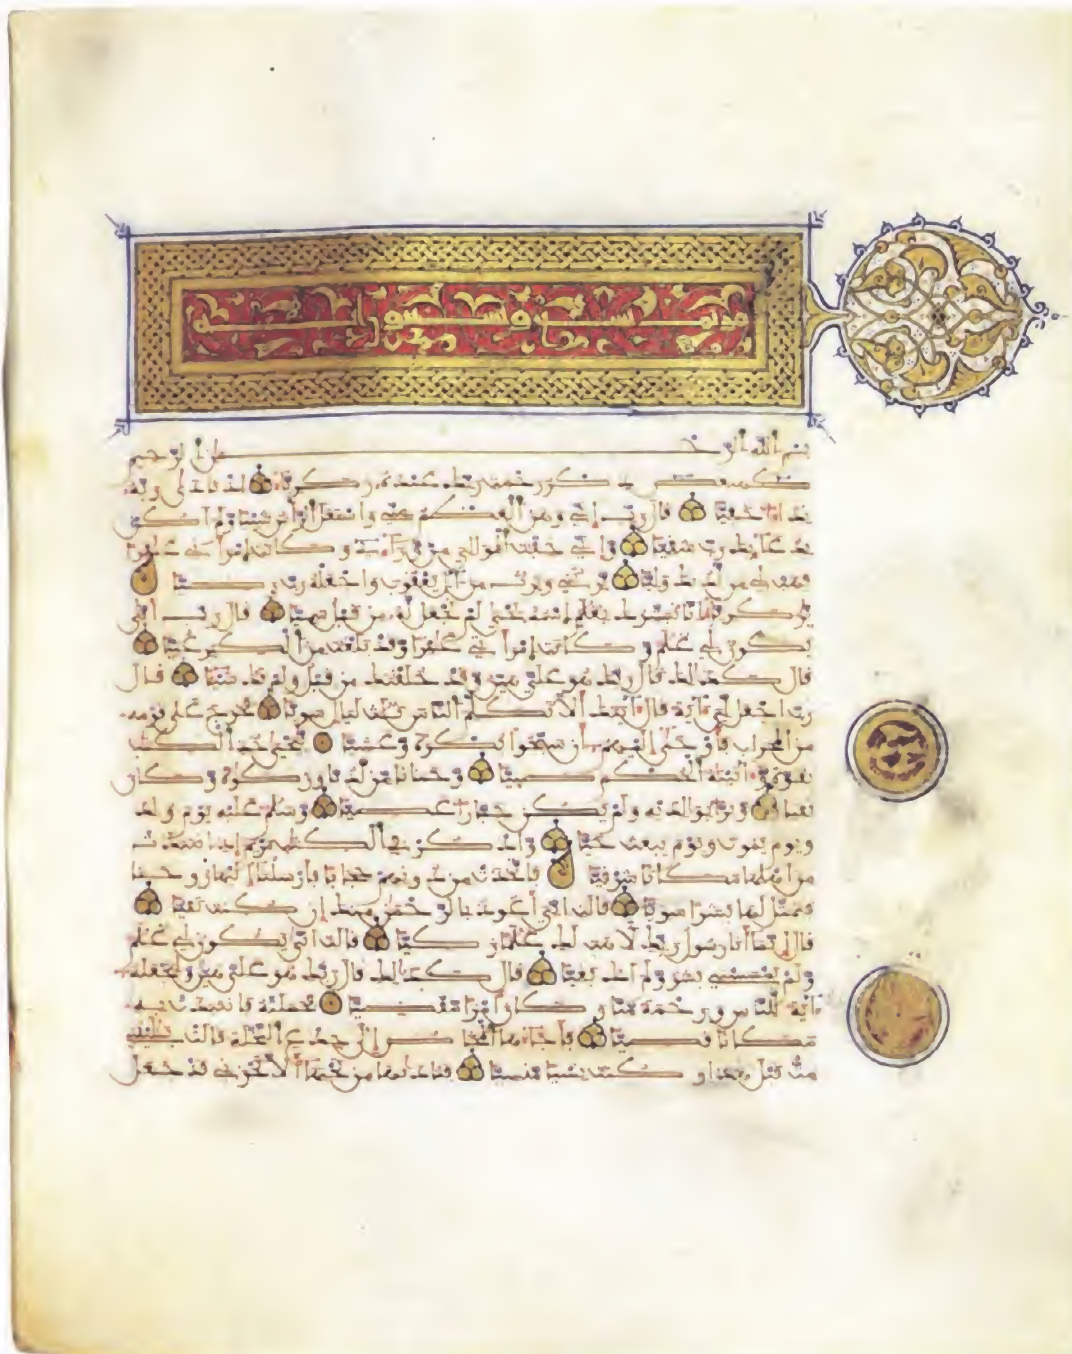 مريم تسع وتسعون اية
بسم الله الرحمن الرحيم
كهيعص ذكر رحمت ربك عبده زكرياء اذ نادى ربه
نداء خفيا قال رب اني وهن العظم مني واشتعل الراس شيبا ولم اكن
بدعائك رب شقيا واني خفت الموالي من وراءي وكانت امراتي عاقرا
فهب لي من لدنك وليا يرثني ويرث من ءال يعقوب واجعله رب رضيا
يزكرياء انا نبشرك بغلم اسمه يحيى لم نجعل له من قبل سميا قال رب انى
يكون لي غلم وكانت امراتي عاقرا وقد بلغت من الكبر عتيا
قال كذلك قال ربك هو علي هين وقد خلقتك من قبل ولم تك شيئا قال
رب اجعل لي ءاية قال ءايتك الا تكلم الناس ثلث ليال سويا فخرج على قومه
من المحراب فاوحى اليهم ان سبحوا بكرة وعشيا ييحيى خذ الكتب
بقوة وءاتينه الحكم صبيا وحنانا من لدنا وزكوة وكان
تقيا وبرا بولديه ولم يكن جبارا عصيا وسلم عليه يوم ولد
ويوم يموت ويوم يبعث حيا واذكر في الكتب مريم اذ انتبذت
من اهلها مكانا شرقيا فاتخذت من دونهم حجابا فارسلنا اليها روحنا
فتمثل لها بشرا سويا قالت اني اعوذ بالرحمن منك ان كنت تقيا
قال انما انا رسول ربك لاهب لك غلما زكيا قالت انى يكون لي غلم
ولم يمسسني بشر ولم اك بغيا قال كذلك قال ربك هو علي هين ولنجعله
ءاية للناس ورحمة منا وكان امرا مقضيا فحملته فانتبذت به
مكانا قصيا فاجاءها المخاض الى جذع النخلة قالت يليتني
مت قبل هذا وكنت نسيا منسيا فناديها من تحتها الا تحزني قد جعل